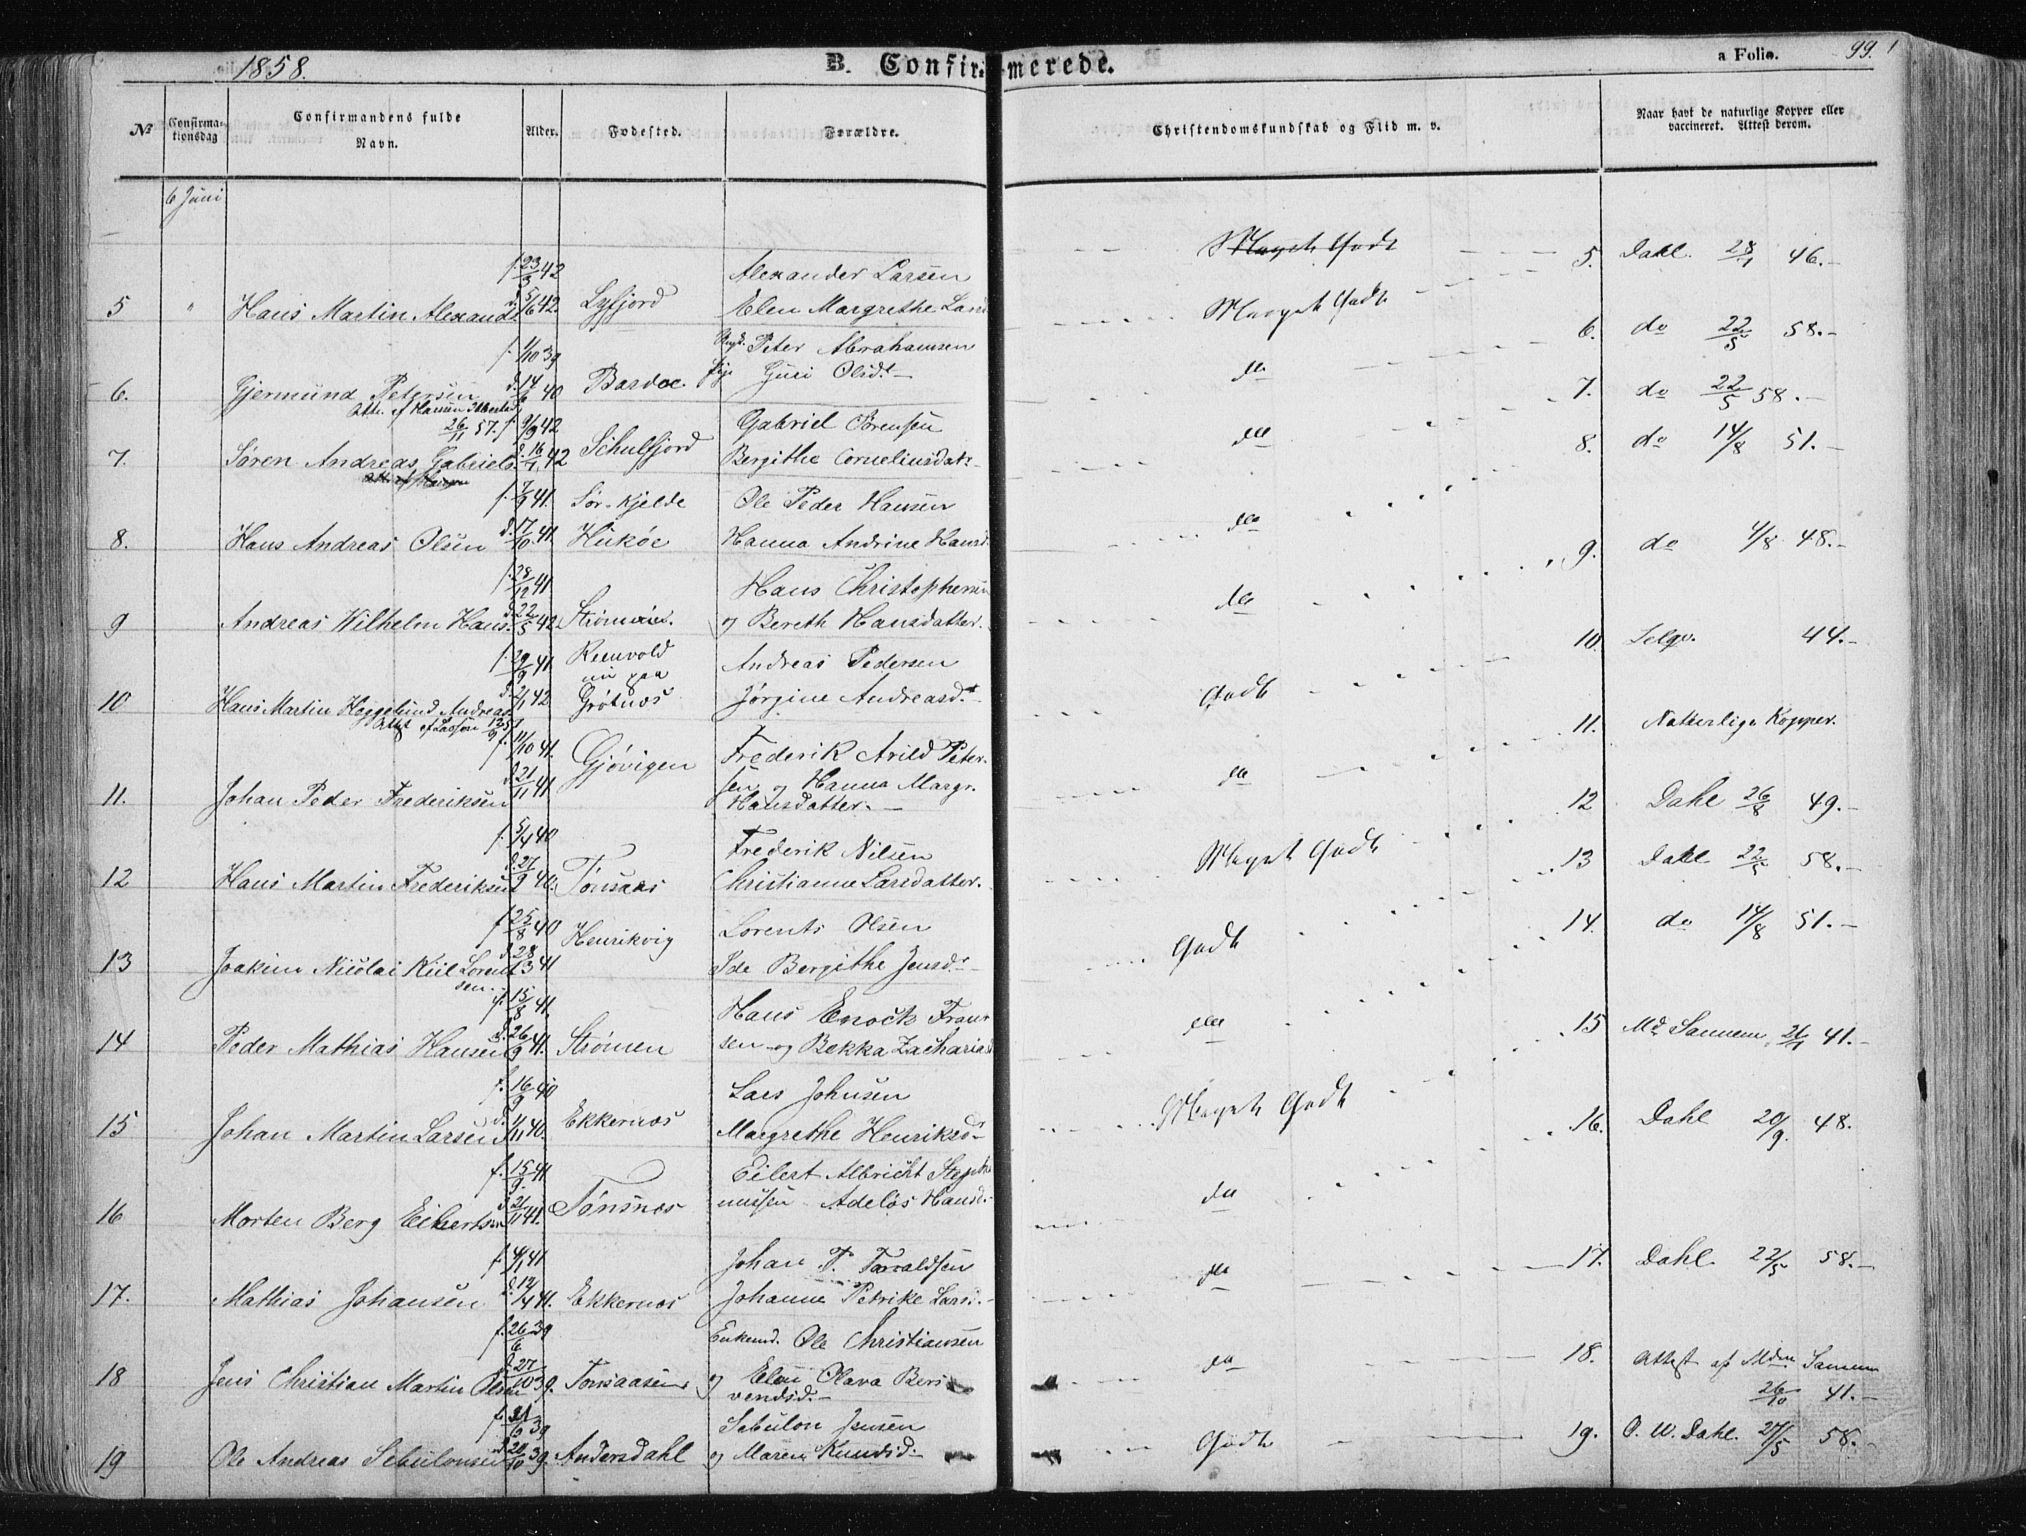 1858.
B. Confirmerede.
a Folio. 99.
No
Confirmationsdag
Confirmandens fulde Navn.
Alder.
Fødested.
Forældre.
Christendomskundskab og Fliid m. v.
Naar havt de naturlige Kopper eller vaccineret. Attest derom.
6 Juni
f. 23/3 42 Alexander Larsen Meget Godt 5. Dahl 46.-
5 " Hans Martin Alexands d. 5/6 42. Lyfjord Elen Margrethe Lars
Meget Godt 6. do 22/5 58.-
f. 1/10 39 Peter Abrahamsen
6. Gjermund Petersen d. 14/6 40 Bardoe Guri Olsd.-
do 7. do 22/5 58.-
26/11 57. f. 9/9 42 Gabriel Sørensen
7. Søren Andreas Gabriels d. 16/ 42 Schulfjord Bergithe Corneliusdat.
do 8. do 14/8 51.-
f. 7/9 41. Sør-Kjelde Ole Peder Hansen
8. Hans Andreas Olsen d. 17/10 41. Hukøe Hanna Andrine Hansd.
do 9. do 4/8 48.-
f. 28/12 41 Hans Christophersen
9 Andreas Wilhelm Hans. d. 22/5 42 og Bereth Hansdatter.
do 10. 44.-
f. 29/9 41. Reenvold Andreas Pedersen
nu paa
10 Hans Martin Heggelund Andreas 42 Grøtnæs Jørgine Andreasd.
Godt 11. Naturlige Kopper.
f. 11/10 41. Gjøvigen Frederik Arild Peter-
11. Johan Peder Frederiksen d. 21/11 41 sen og Hanna Margr.
Hansdatter.-
do 12 Dahl 26/8 49.-
f. 5/4 40 Frederik Nilsen
12 Hans Martin Frederiksen d. 27/9 40. Tønsaas Christianne Larsdatter.
Meget Godt 13 Dahl 22/5 58.-
f. 25/8 40 Henrikvig Lorents Olsen
13 Joakim Nicolai Kiil Loren d. 28/3 41 Ide Bergithe Jensd.
sen.
Godt 14. do 14/8 51.-
f. 15/8 41. Hans Enock Fran-
14 Peder Mathias Hansen d. 26/9 41. Strømen sen og Bekka Zacharias
do 15 Md Sannem 41.-
f. 16/9 40 Lars Johnsen
15 Johan Martin Larsen d. 1/11 40. Ekkernæs Margrethe Henriksd.
Meget Godt 16. Dahl 20/9. 48.
f. 15/9 41 Eilert Albricht
16 Morten Berg Eilertsen d. 21/11 41. Tønsnæs Adeløs Hansd.
do 17. Dahl. 22/5 58.-
f. 4/1 41 Johan P. Toraldsen
17. Mathias Johansen d. 12/4 41. Ekkernæs Johanne Petrike Lars.
do 18. Attest af Mdm Sannem
26/10 41.-
f. 26/6 39 Enkemd. Ole Christiansen
18 Jens Christian Martin Olsen d. 27/10 39. Tønsaasen og Elen Olava Bers
vendsd.-
Godt 19. O. W. Dahl. 27/5 58.-
f. 21/6 39 Sebulon Jensen
19 Ole Andreas Sebulonsen d. 20/10 39. Andersdahl og Maren Knudsd.-